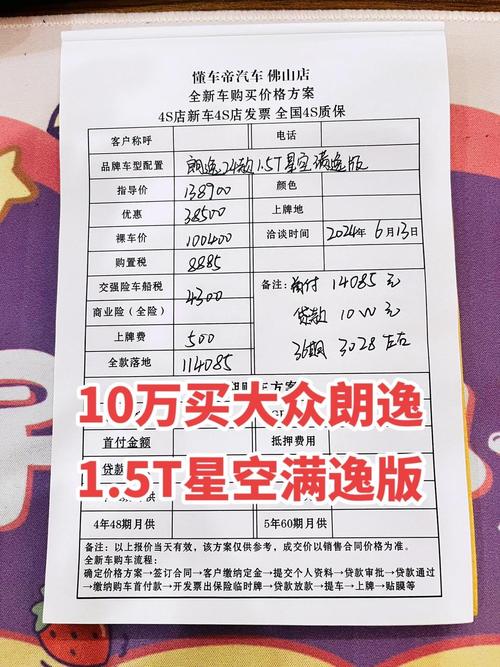 懂车帝汽车 佛山店
全新车购买价格方案
4S店新车4S店发票 全国4S质保
客户称呼 电话
品牌车型配置 朗逸24款1.5T星空满逸版
指导价 138900 颜色
优惠 38500 上牌地
裸车价 100400 洽谈时间 2024年6月13日
购置税 8885
交强险车船税 4300 备注: 首付 14085 元
商业险(全险) 贷款 10W 元
上牌费 500 36期 3028 左右
全款落地 114085
10万买大众朗逸
首付金额 抵押费用
贷款
1.5T星空满逸版
4年48期月供 5年60期月供
备注:以上报价当天有效,该方案仅供参考,成交价以销售合同价格为准。
全新车购车流程:
确定价格方案→签订合同→客户缴纳定金→提交个人资料→贷款审批→贷款通过
→缴纳购车首付款→开发票出保险临时牌→贷款放款→提车→上牌→贴膜等